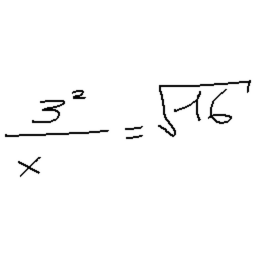 3²/x = √-16